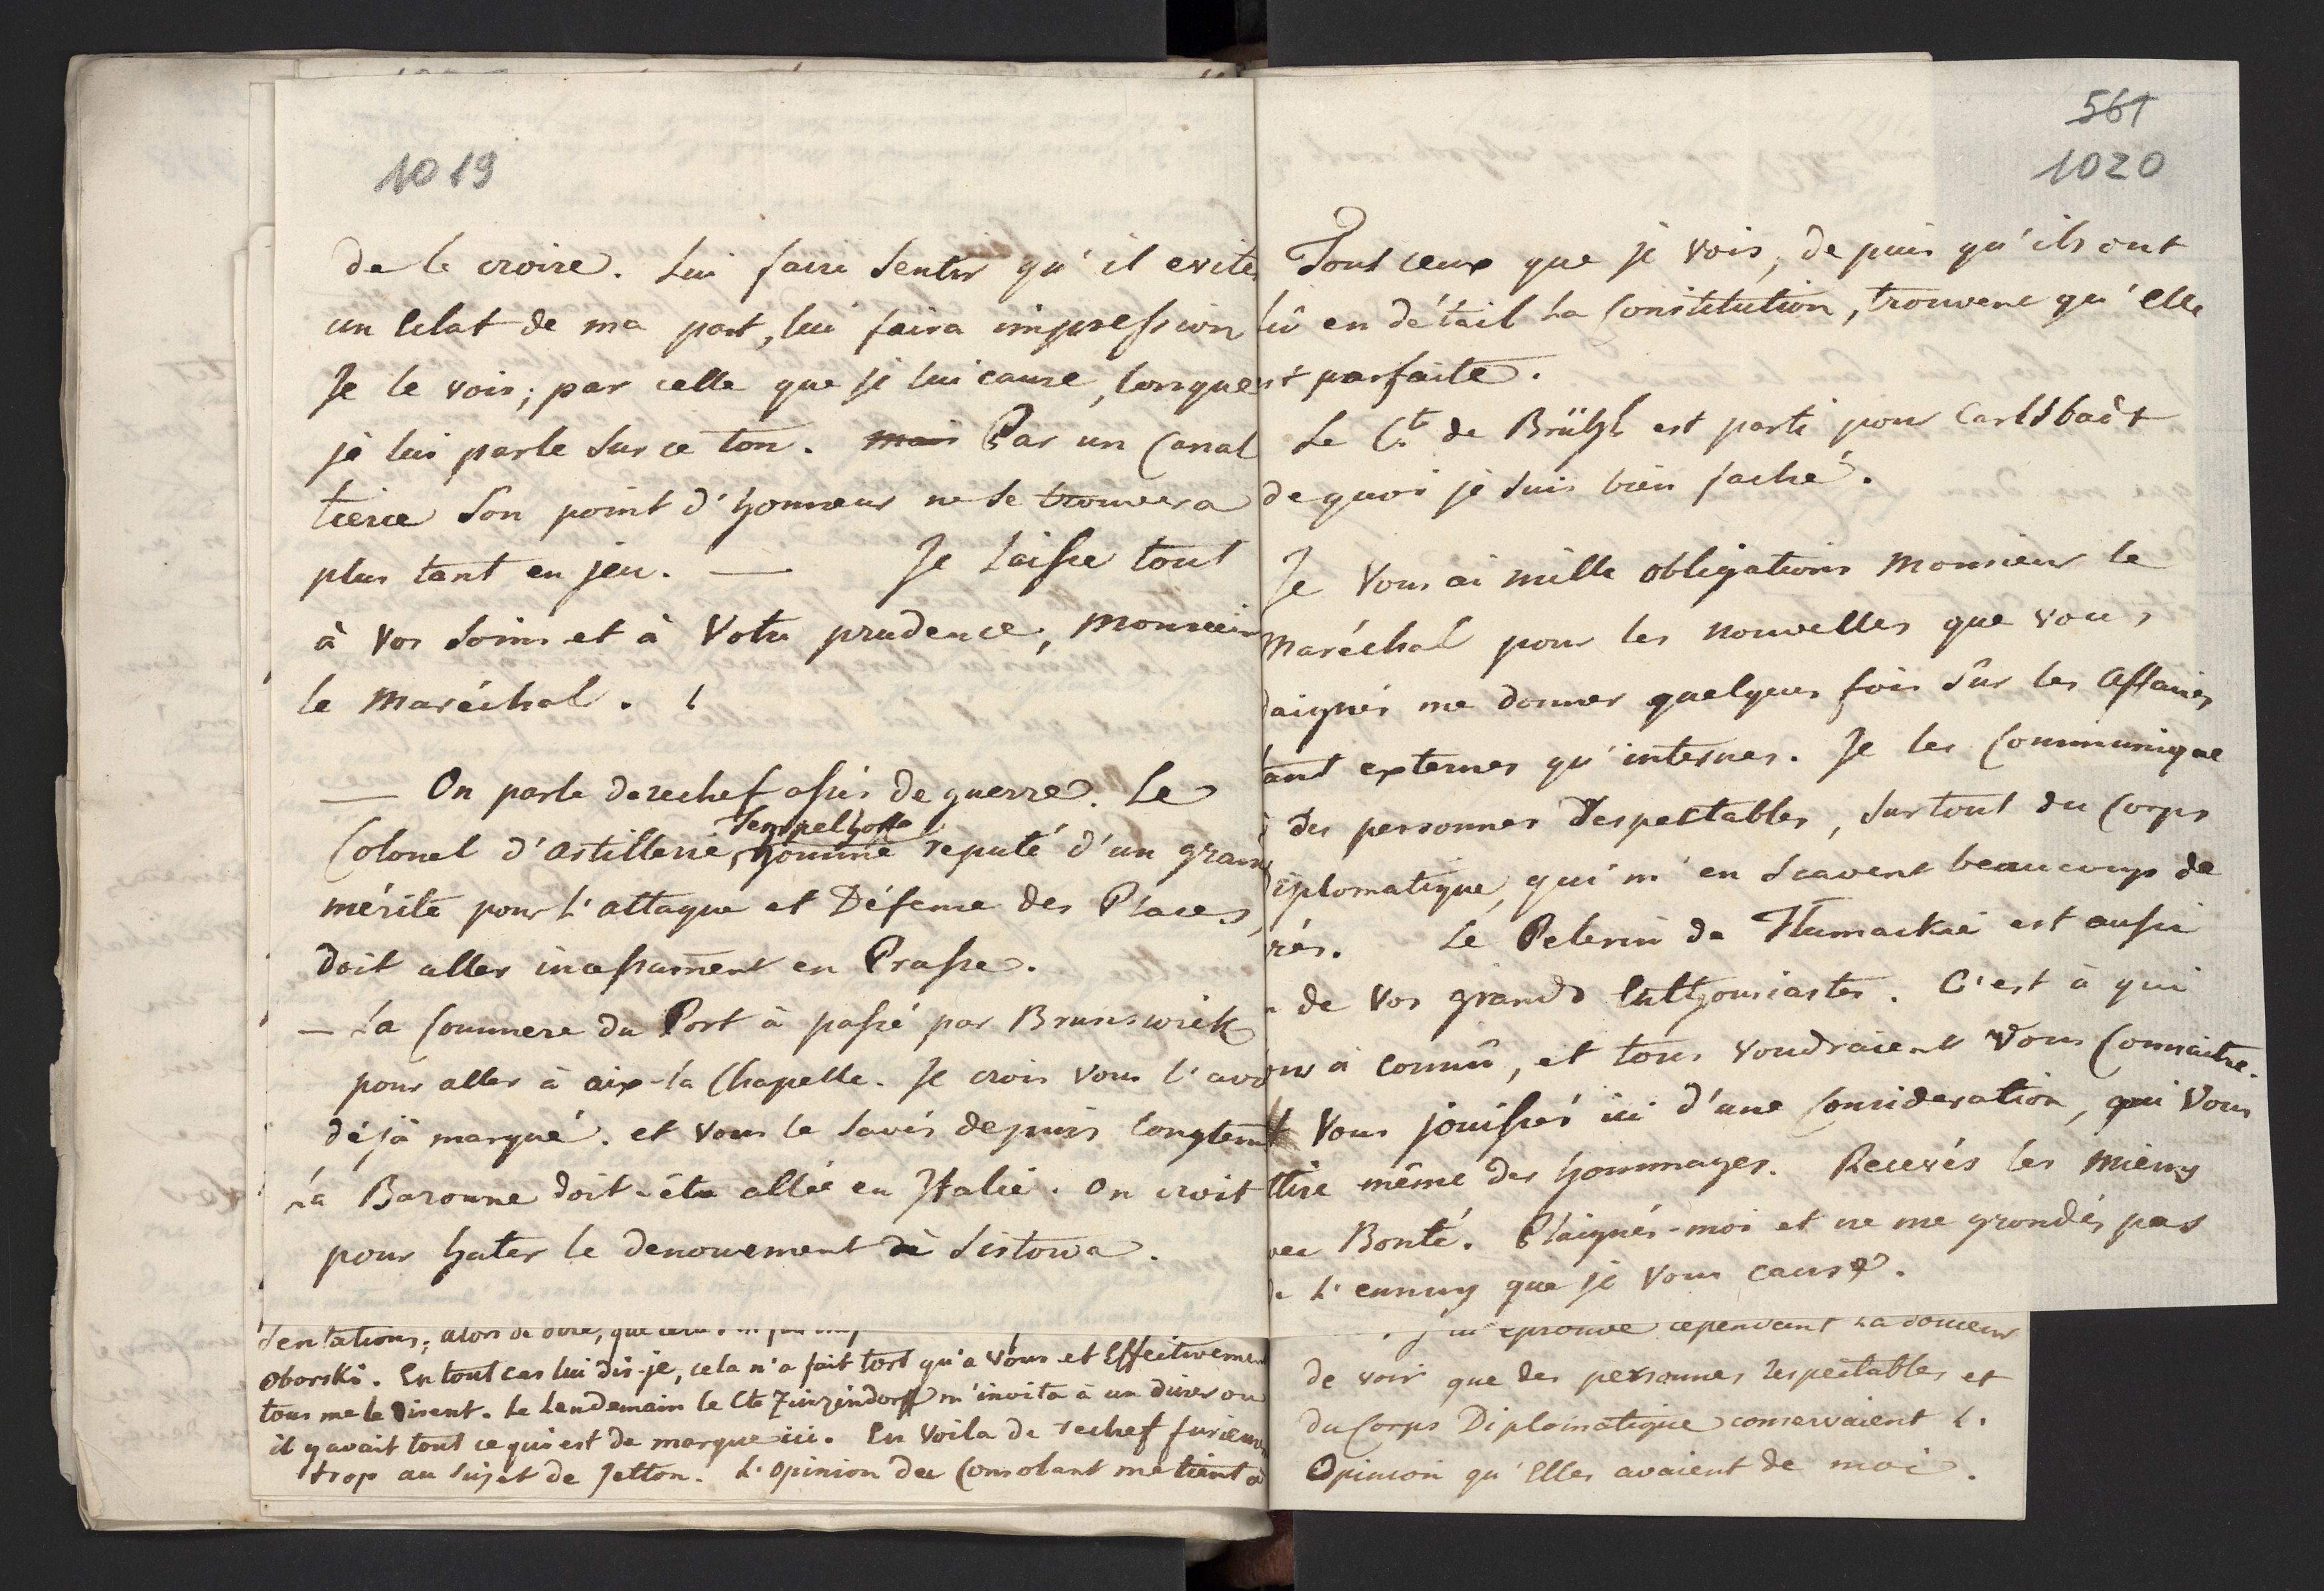 1019
de le croire. Lui faire sentir qu'il evite
un Eclat de ma part, lui faira impression
Je le vois; par celle que je lui cause, lorsque
je lui parle sur ce ton. mais Par un Canal
tierce son point d'honneur ne se trouvera
plus tant en jeu. — Je laisse tout
à vos soins et à Votre prudence, Monsieur
le Maréchal.
— On parle derechef assés de guerre. Le
Tempelhoff
Colonel d'Artillerie, homme reputé d'un grand
mérite pour l'attaque et Défense des Places,
doit aller incessament en Prusse.
— La Commere du Port à passé par Brunswiek
pour aller à aix-la Chapelle. Je crois vous l'avo
déjà marqué. et vous le savés depuis longtems
La Baronne doit-être allée en Italie. On croit
pour hater le denouement de Sistowa.
sentations;
Oborski. En tout cas lui dis-je, cela n'a fait tort qu'a vous et Effectivement
tous me le disent. Le Lendemain le Cte Zinzindorff m'invita à un diner ou
il y avait tout ce qui est de marque ici. En voila de rechef furieux
trop au sujet de Jetton. L'opinion des Consolant me tient
561
1020
Tous ceux que je vois, depuis qu'ils ont
lû en détail la Constitution, trouvent qu'elle
st parfaite.
Le Ct de Brühl est parti pour Carlsbadt
de quoi je suis bien faché.
Je Vous ai mille obligations Monsieur le
Maréchal pour les nouvelles que vous
daignés me donner quelques fois sûr les Affaires
tant externes qu'internes. Je les Communique
à des personnes Respectables, surtout du Corps
Diplomatique, qui m'en scavent beaucoup de
rés. Le Pelerin de Tlumackie est aussi
n de vos grands Enthousiastes. C'est à qui
ous a connû, et tous voudraient Vous Connaitre.
t Vous jouissés ici d'une Consideration, qui Vous
ttire même des hommages. Recevés les miens
vec Bonté. Plaignés-moi et ne me grondés pas
de L'ennuy que je Vous cause.
eprouve cependant la douceur
de voir que des personnes respectables et
du Corps Diplomatique conservaient l'
Opinion qu'Elles avaient de moi.